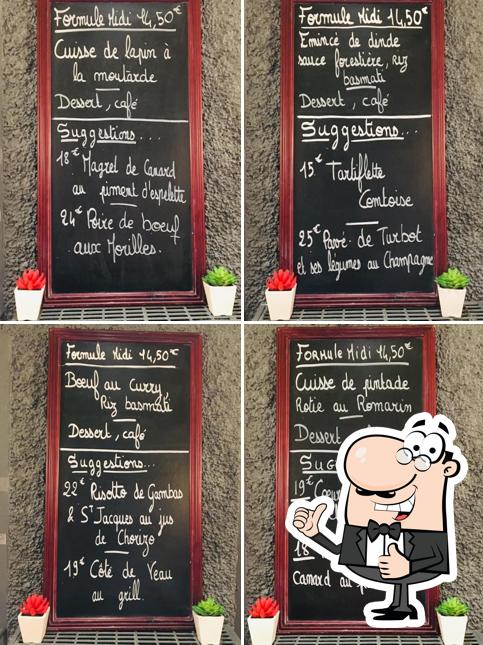 Formule Midi 14,50€
Cuisse de lapin à
la moutarde
Dessert, café
Suggestions....
18€ Magret de Canard
au piment d'espelette
24€ Poire de boeuf
aux Morilles.
Formule Midi 14,50€
Emincé de dinde
sauce forestière, riz
basmati
Dessert, café
Suggestions...
15€ Tartiflette
Comtoise
25€ Pavé de Turbot
et ses légumes au Champagne
Formule Midi 14,50€
Bœuf au curry
Riz basmati
Dessert, café
Suggestions...
22€ Risotto de Gambas
& St Jacques au jus
de Chorizo
19€ Côte de Veau
au grill.
Formule Midi 14,50€
Cuisse de pintade
Rotie au Romarin
Dessert
19€
18
Canard au